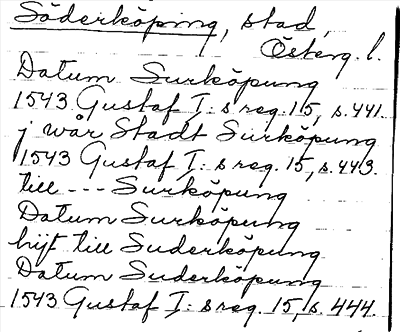 Söderköping, stad,
Österg. l.
Datum Surköpung
1543 Gustaf I: s reg. 15, s. 441.
j wår Stadt Surköpung
1543 Gustaf I: s reg. 15, s. 443.
till --- Surköpung
Datum Surköpung
hijt till Suderköpung
Datum Suderköpung
1543 Gustaf I: s reg. 15, s. 444.